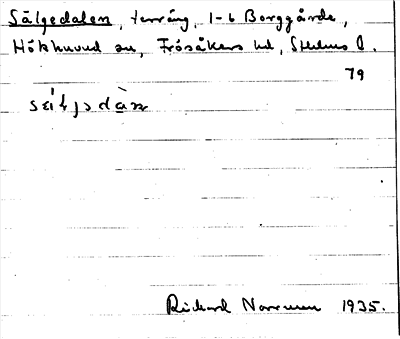 Sälgedalen, terräng, 1-6 Borggårde,
Hökhuvud sn, Frösåkers hd, Sthlms l.
79
Rickard Norrman 1935.